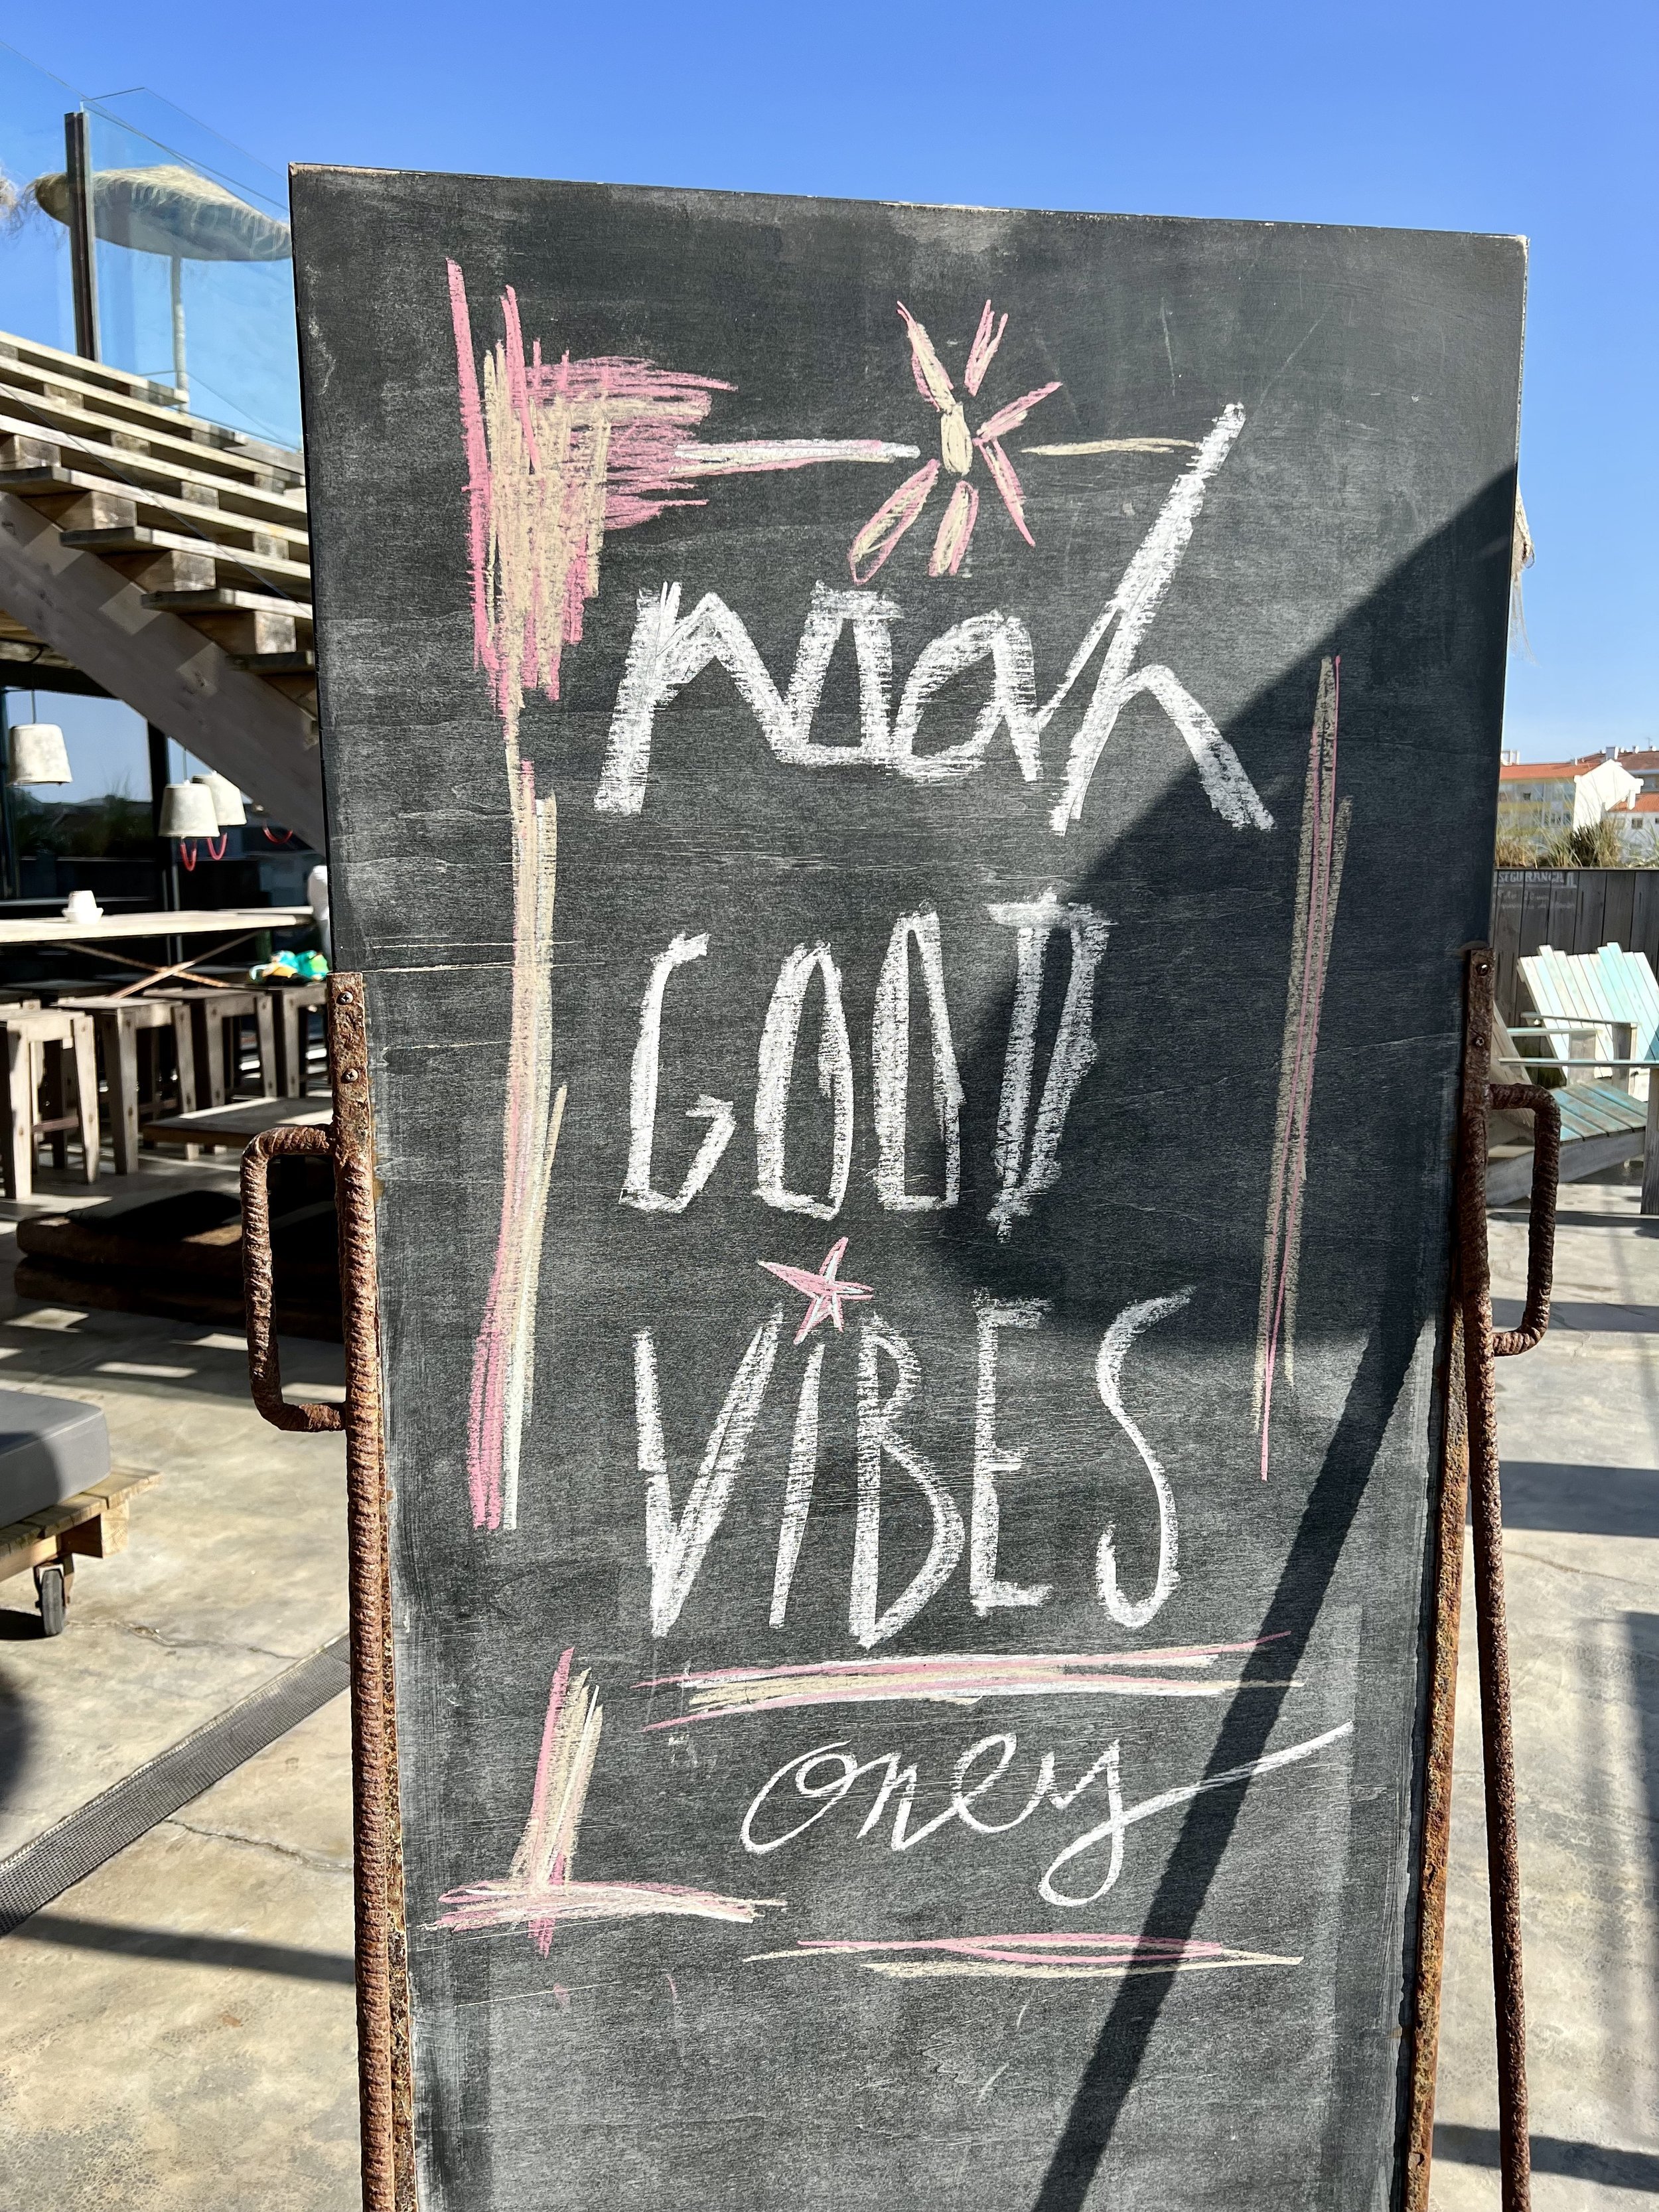 noah
GOOD
ViBES
only
SEGURANCA